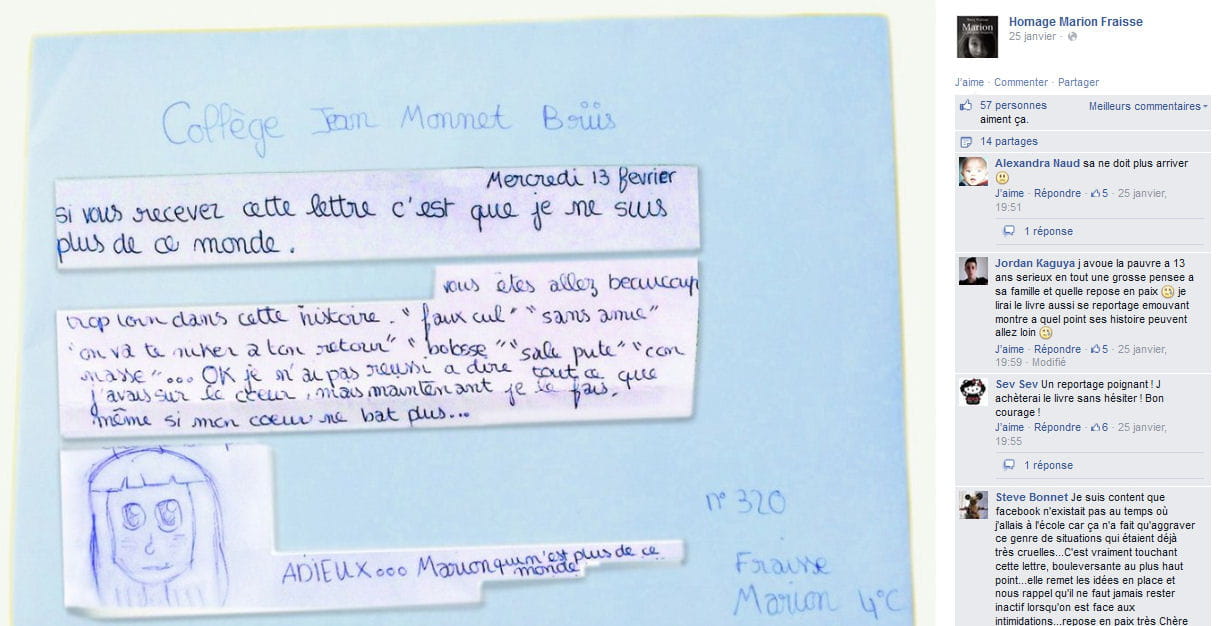 Collège Jean Monnet Brüis
Mercredi 13 février
si vous recevez cette lettre c'est que je ne suis
plus de ce monde.
vous êtes allez beaucoup
trop loin dans cette histoire. "faux cul" "sans amie"
"on va te niker a ton retour" "bolosse" "sale pute" "con
nasse"... OK je n'ai pas reussi a dire tout ce que
j'avais sur le cœur, mais maintenant je le fais,
même si mon coeur ne bat plus...
ADIEUX ooo Marion qui n'est plus de ce
monde
n° 320
Fraisse
Marion 4°C
Marion
Homage Marion Fraisse
25 janvier ·
J'aime · Commenter · Partager
57 personnes
aiment ça.
Meilleurs commentaires
14 partages
Alexandra Naud sa ne doit plus arriver
J'aime · Répondre · 5 · 25 janvier,
19:51
1 réponse
Jordan Kaguya j avoue la pauvre a 13
ans serieux en tout une grosse pensee a
sa famille et quelle repose en paix je
lirai le livre aussi se reportage emouvant
montre a quel point ses histoire peuvent
allez loin
J'aime · Répondre · 5 · 25 janvier,
19:59 · Modifié
Sev Sev Un reportage poignant ! J
achèterai le livre sans hésiter ! Bon
courage !
J'aime · Répondre · 6 · 25 janvier,
19:55
1 réponse
Steve Bonnet Je suis content que
facebook n'existait pas au temps où
j'allais à l'école car ça n'a fait qu'aggraver
ce genre de situations qui étaient déjà
très cruelles...C'est vraiment touchant
cette lettre, bouleversante au plus haut
point...elle remet les idées en place et
nous rappel qu'il ne faut jamais rester
inactif lorsqu'on est face aux
intimidations...repose en paix très Chère